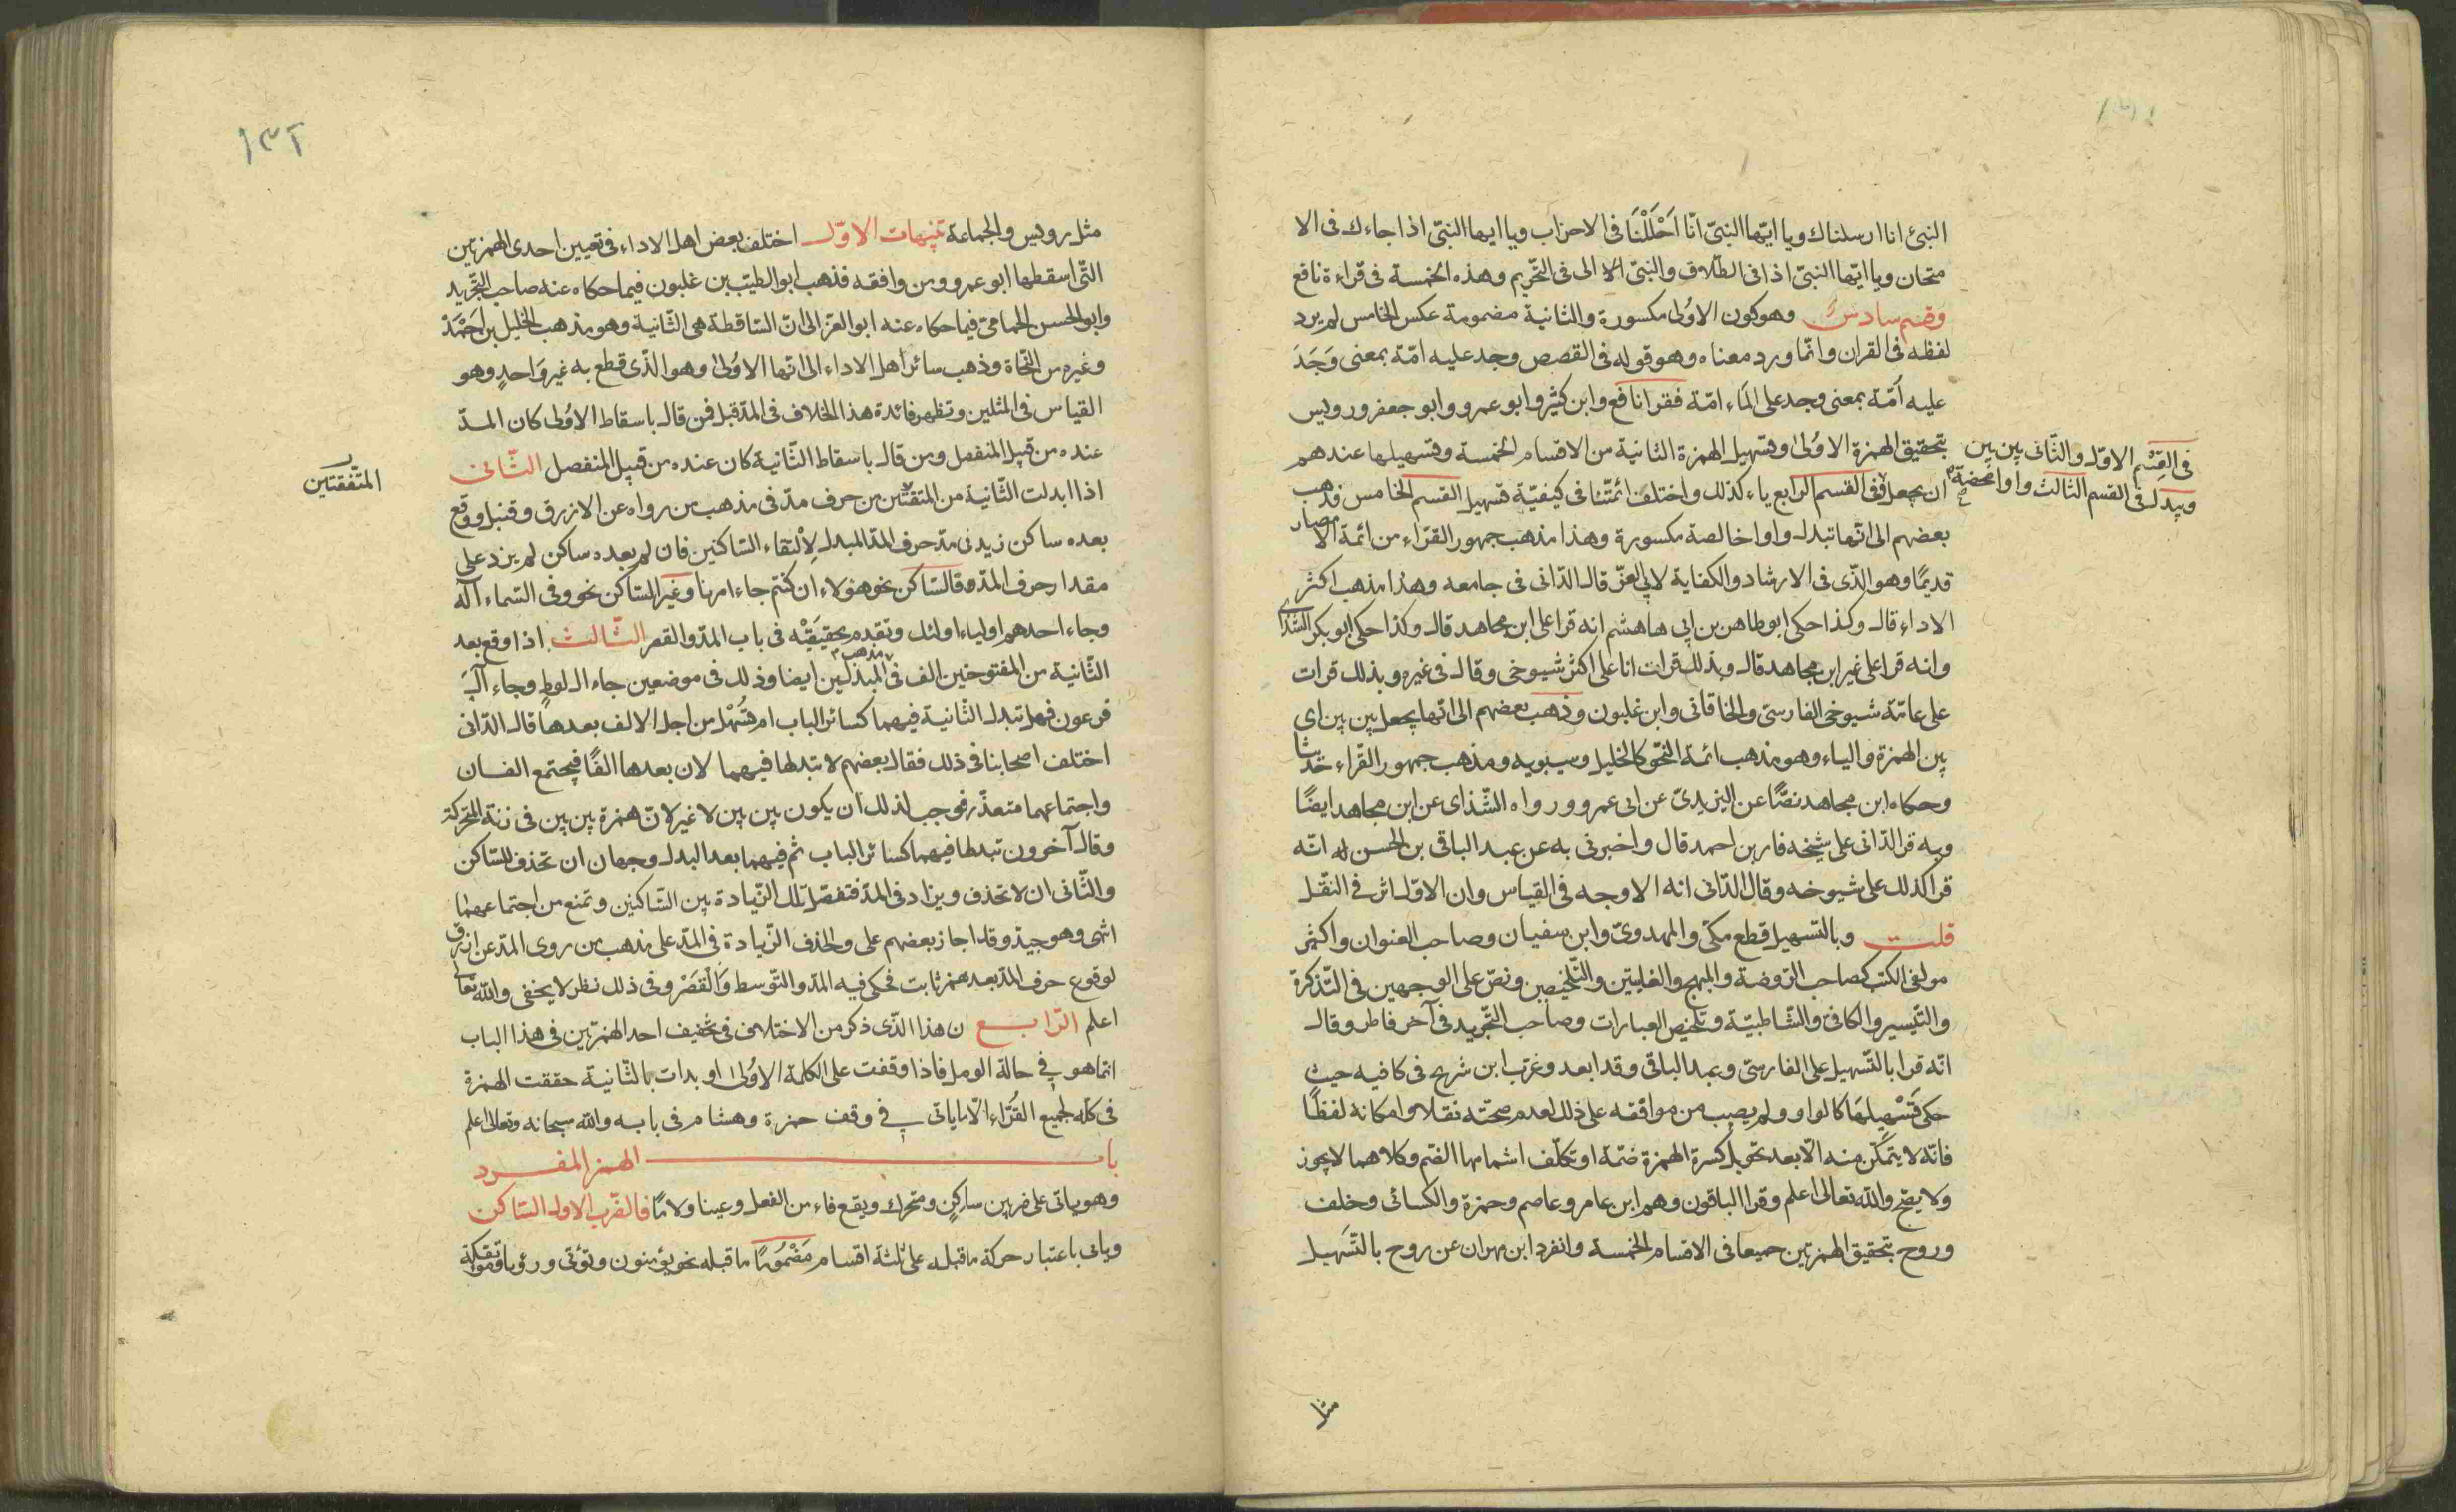 النبئ انا ارسلناك ويا ايّها النبىّ انّا اَحْلَلْنَا فى الاحزاب ويا ايها النبىّ اذا جاءك فى الا
متحان ويا ايّها النبىّ اذا فى الطّلاق والنبىّ الا الى فى التّحريم وهذه الخمسة فى قراءة نافع
وقسم سادس وهو كون الاوُلى مكسورة والثانية مضمومة عكس الخامس لم يرد
لفظه فى القران وانّما ورد معناه وهو قوله فى القصص وجد عليه امّة بمعنى وَجَدَ
عليه اُمّة بمعنى وجد على الماء امّة فقرا نافع وابن كثير وابو عمرو وابو جعفر ورويس
بتحقيق الهمزة الاوُلىٰ وتسهيل الهمزة الثانية من الاقسام الخمسة وتسهيلها عندهم
ان يجعل فى القسم الرابع ياء كذلك واختلف ائمّتنا فى كيفيّة تسهيل القسم الخامس فذهب
فى القِسْم الاوّل والثّانى بين بين
ويبدل فى القسم الثالث واوا محضة
بعضهم الى انّها تبدل واوا خالصة مكسورة وهذا مذهب جمهور القرّاء من ائمة الامصار
قديمًا وهو الذّى فى الارشاد والكفاية لابى العزّ قال الدّانى فى جامعه وهذا مذهب اكثر
الاداء قال وكذا حكى ابو طاهر بن ابى هاهشم انه قرا على ابن مجاهد قال وكذا حكى ابو بكر الشذاى
وانه قرا على غير ابن مجاهد قال وبذلك قرات انا على اكثر شيوخى وقال فى غيره وبذلك قرات
على عامّة شيوخى الفارسىّ والخاقانى وابن غلبون وذهب بعضهم الى انّها يجعل بين بين اى
بين الهمزة والياء وهو مذهب ائمة النّحو كالخليل وسيبويه ومذهب جمهور القرّاء حديثا
وحكاه ابن مجاهد نصًّا عن اليزيدىّ عن ابى عمرو ورواه الشّذاى عن ابن مجاهد ايضًا
وبه قرا الدّانى على شيخه فارس بن احمد قال واخبرنى به عن عبد الباقى بن الحسن انّه
قرا كذلك على شيوخه وقال الدّانى انه الاوجه فى القياس وان الاوّل اثر فى النّقل
قلت وبالتّسهيل قطع مكّى والمهدوىّ وابن سفيان وصاحب العنوان واكثر
مولفى الكتب كصاحب الرّوضة والمبهج والغايتين والتّلخيص ونصّ على الوجهين فى التّذكرة
والتّيسير والكافى والشّاطبيّة وتلخيص العبارات وصاحب التّجريد فى آخر فاطر وقال
انّه قرا بالتّسهيل على الفارسىّ وعبد الباقى وقد ابعد وغرّب ابن شريح فى كافيه حيث
حكى تَسْهِيلهَا كالواو ولم يصب من موافقه على ذلك لعدم صحّته نقلا وامكانه لفظًا
فانّه لا يتمكّن منه الّا بعد تحويل كسرة الهمزة ضمّة او تكلّف اشمامها الضّم وكلاهما لا يجوز
ولا يصّح والله تعالى اعلم وقرا الباقون وهم ابن عامر وعاصم وحمزة والكسائى وخلف
وروح بتحقيق الهمزتين جميعا فى الاقسام الخمسة وانفرد ابن مهران عن روح بالتّسهيل
مثل
١٣٢
مثل رويس والجماعة تنبيهات الاوّل اختلف بعض اهل الاداء فى تعيين احدى الهمزتين
التّى اسقطها ابو عمرو ومن وافقه فذهب ابو الطيّب بن غلبون فيما حكاه عنه صاحب التّجريد
وابو الحسن الحمامىّ فيما حكاه عنه ابو العز الى انّ السّاقطة هى الثّانية وهو مذهب الخليل بن اَحْمَدْ
وغيره من النّحاة وذهب سائر اهل الاداء الى انّها الاوُلىٰ وهو الذّى قطع به غير وَاحدٍ وهو
القياس فى المثلين وتظهر فائدة هذا الخلاف فى المدّ قبل فمن قال باسقاط الاوُلى كان المدّ
عنده من قبيل المنفصل ومن قال باسقاط الثّانية كان عنده من قبيل المنفصل الثّانى
اذا ابدلت الثّانية من المتفقتين من حرف مدّ فى مذهب من رواه عن الازرق وقنبل ووقع
المتّفقتين
بعده ساكن زيد فى مدّ حرف المدّ المبدل لِالْتقاء السّاكنين فان لم بعده ساكن لم يزد على
مقدار حرف المدّ فالسّاكن نحو هؤلاء ان كنتم جاء امرنا وغير السّاكن نحو وفى السّماء آله
وجاء احدهم اولياء اولئك وتقدم تحقيقه فى باب المدّ والقصر الثّالث اذا وقع بعد
الثّانية من المفتوحتين الف فى مذهب المبدلين ايضا وذلك فى موضعين جاء ال لوط وجاء آل
فرعون فهل تبدل الثّانية فيهما كسائر الباب ام تُسَهَّل من اجل الالف بعدها قال الدّانى
اختلف اصحابنا فى ذلك فقال بعضهم لا تبدلها فيهما لان بعدها الفًا فيجتمع الفان
واجتماعهما متعذّر فوجب لذلك ان يكون بين بين لا غير لانّ همزة بين بين فى زنة المتحركة
وقال آخرون تبدلها فيهما كسائر الباب ثم فيهما بعد البدل وجهان ان تحذف للسّاكن
والثّانى ان لا تحذف ويزاد فى المدّ فتفصل تلك الزّيادة بين السّاكنين وتمنع من اجتماعهما
انتهى وهو جيد وقد اجاز بعضهم على والحذف الزّيادة فى المدّ على مذهب من روى المدّ عن ازرق
لوقوع حرف المدّ بعد همز ثابت فحكى فيه المدّ والتّوسط وَالْقَصْر وفى ذلك نظر لا يخفى والله تعالى
اعلم الرّابع ن هذا الذّى ذكر من الاختلاف فى تخفيف احد الهمزتين فى هذا الباب
انّما هو فى حالة الوصل فاذا وقفت على الكلمة الاوُلىٰ او بدات بالثّانية حققت الهمزة
فى كلّه لجميع القُرّاء الّا ما ياتى فى وقف حمزة وهشام فى بابه والله سبحانه وتعالى اعلم
باب الهمز المفرد
وهو ياتى على ضربين ساكن ومتحرك ويقع فاء من الفعل وعينا ولامًا فالضّرب الاول السّاكن
وياتى باعتبار حركة ما قبله على ثلثة اقسام مَضْمُومًا ما قبله نحو يؤمنون وتؤتى ورؤيا ومؤتفكة